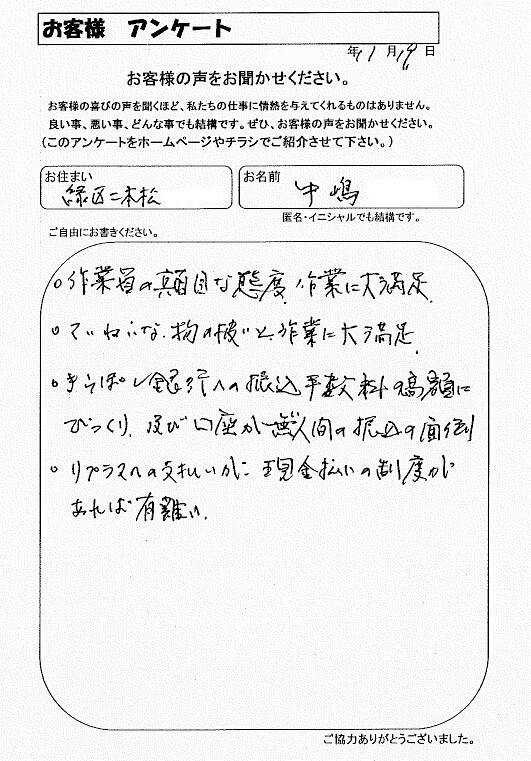 お客様 アンケート
年11月19日
お客様の声をお聞かせください。
お客様の喜びの声を聞くほど、私たちの仕事に情熱を与えてくれるものはありません。
良い事、悪い事、どんな事でも結構です。ぜひ、お客様の声をお聞かせください。
(このアンケートをホームページやチラシでご紹介させて下さい。)
お住まい
緑区二本松
お名前
中嶋
匿名・イニシャルでも結構です。
ご自由にお書きください。
○作業員の真面目な態度、作業に大満足
○ていねいな、物の扱いと、作業に大満足
○きらぼし銀行への振込手数料の高額に
びっくり、及び口座が無人間の振込の面倒
○リプラスへの支払いがに現金払いの制度が
あれば有難い。
ご協力ありがとうございました。